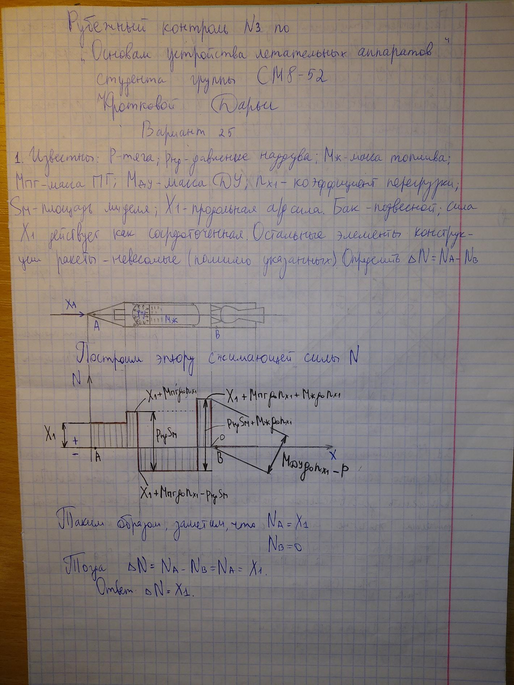 Рубежный контроль №3 по
"Основам устройства летательных аппаратов"
студента группы СМ8-52
Кротковой Дарьи
Вариант 25
1. Известны: P-тяга; pнр-давление наддува; Mк-масса топлива;
Mпг-масса ПГ; Mду-масса ДУ; nx1-коэффициент перегрузки;
Sм-площадь миделя; X1-продольная аэр. сила. Бак-подвесной; сила
X1 действует как сосредоточенная. Остальные элементы конструк-
ции ракеты-невесомые (помимо указанных) Определить ΔN=NA-NB
X1
A
Mк
B
Построим эпюру сжимающей силы N
N
X1+Mпгg0nx1
X1+Mпгg0nx1+Mкg0nx1
X1
pнрSм
pнрSм+Mкg0nx1
+
-
A
0
B
X
Mдуg0nx1-P
X1+Mпгg0nx1-pнрSм
Таким образом, заметим, что NA=X1
NB=0
Тогда ΔN=NA-NB=NA=X1.
Ответ ΔN=X1.